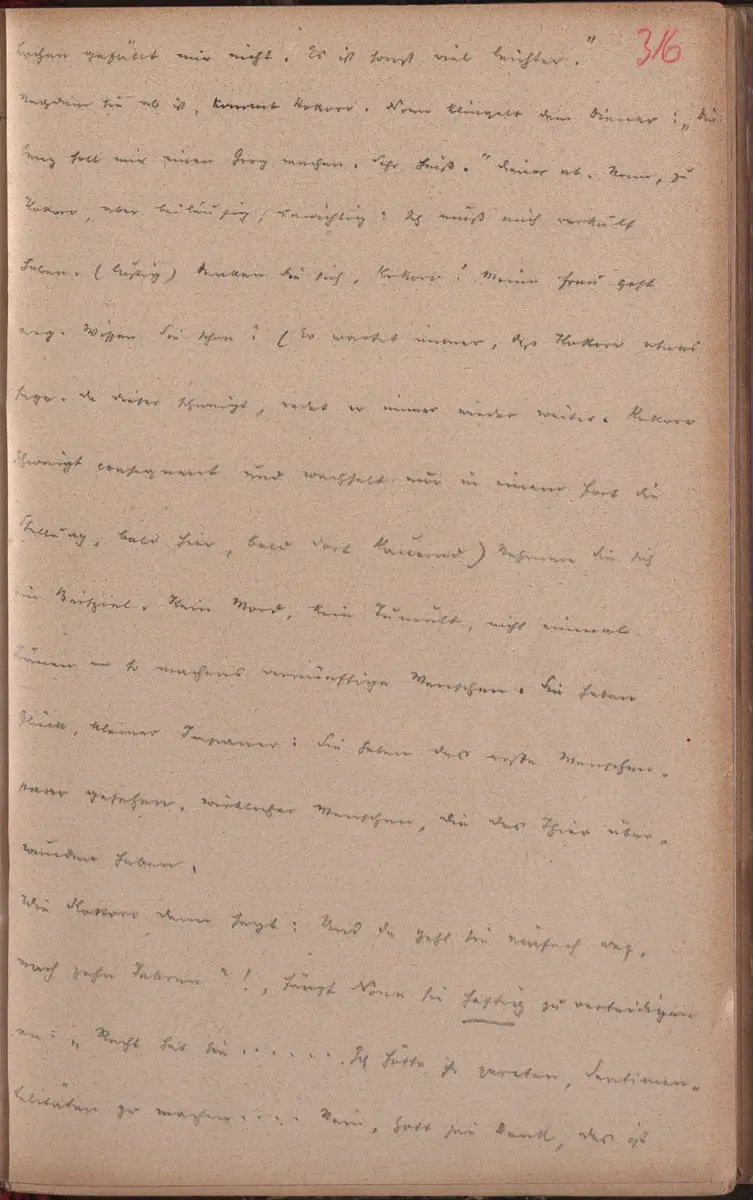 316
Lachen gefällt mir nicht. Es ist sonst viel leichter."
Nachdem sie ab ist, kommt Kokoro. Nonn klingelt dem Diener: „Die
Lenz soll mir einen Grog machen. Sehr heiß." Diener ab. Nonn, zu
Kokoro, aber beiläufig, unwichtig: Ich muß mich verkühlt
haben. (lustig) Denken Sie sich, Kokoro! Meine Frau geht
weg. Wissen Sie schon? (Er wartet immer, daß Kokoro etwas
sage. Da dieser schweigt, redet er immer wieder weiter. Kokoro
schweigt consequent und wechselt nur in einem fort die
Stellung, bald hier, bald dort kauernd.) Nehmen Sie sich
ein Beispiel. Kein Mord, kein Tumult, nicht einmal
Tränen – so machens vernünftige Menschen. Sie haben
Glück, kleiner Japaner: Sie haben das erste Menschen-
paar gesehen, wirklicher Menschen, die das Thier über-
wunden haben.
Wie Kokoro dann sagt: Und da geht sie einfach weg,
nach zehn Jahren?!, fängt Nonn sie heftig zu verteidigen
an: „Recht hat sie...... Ich hätte ihr geraten, Sentimen-
talitäten zu machen.... Nein, Gott sei Dank, das ist